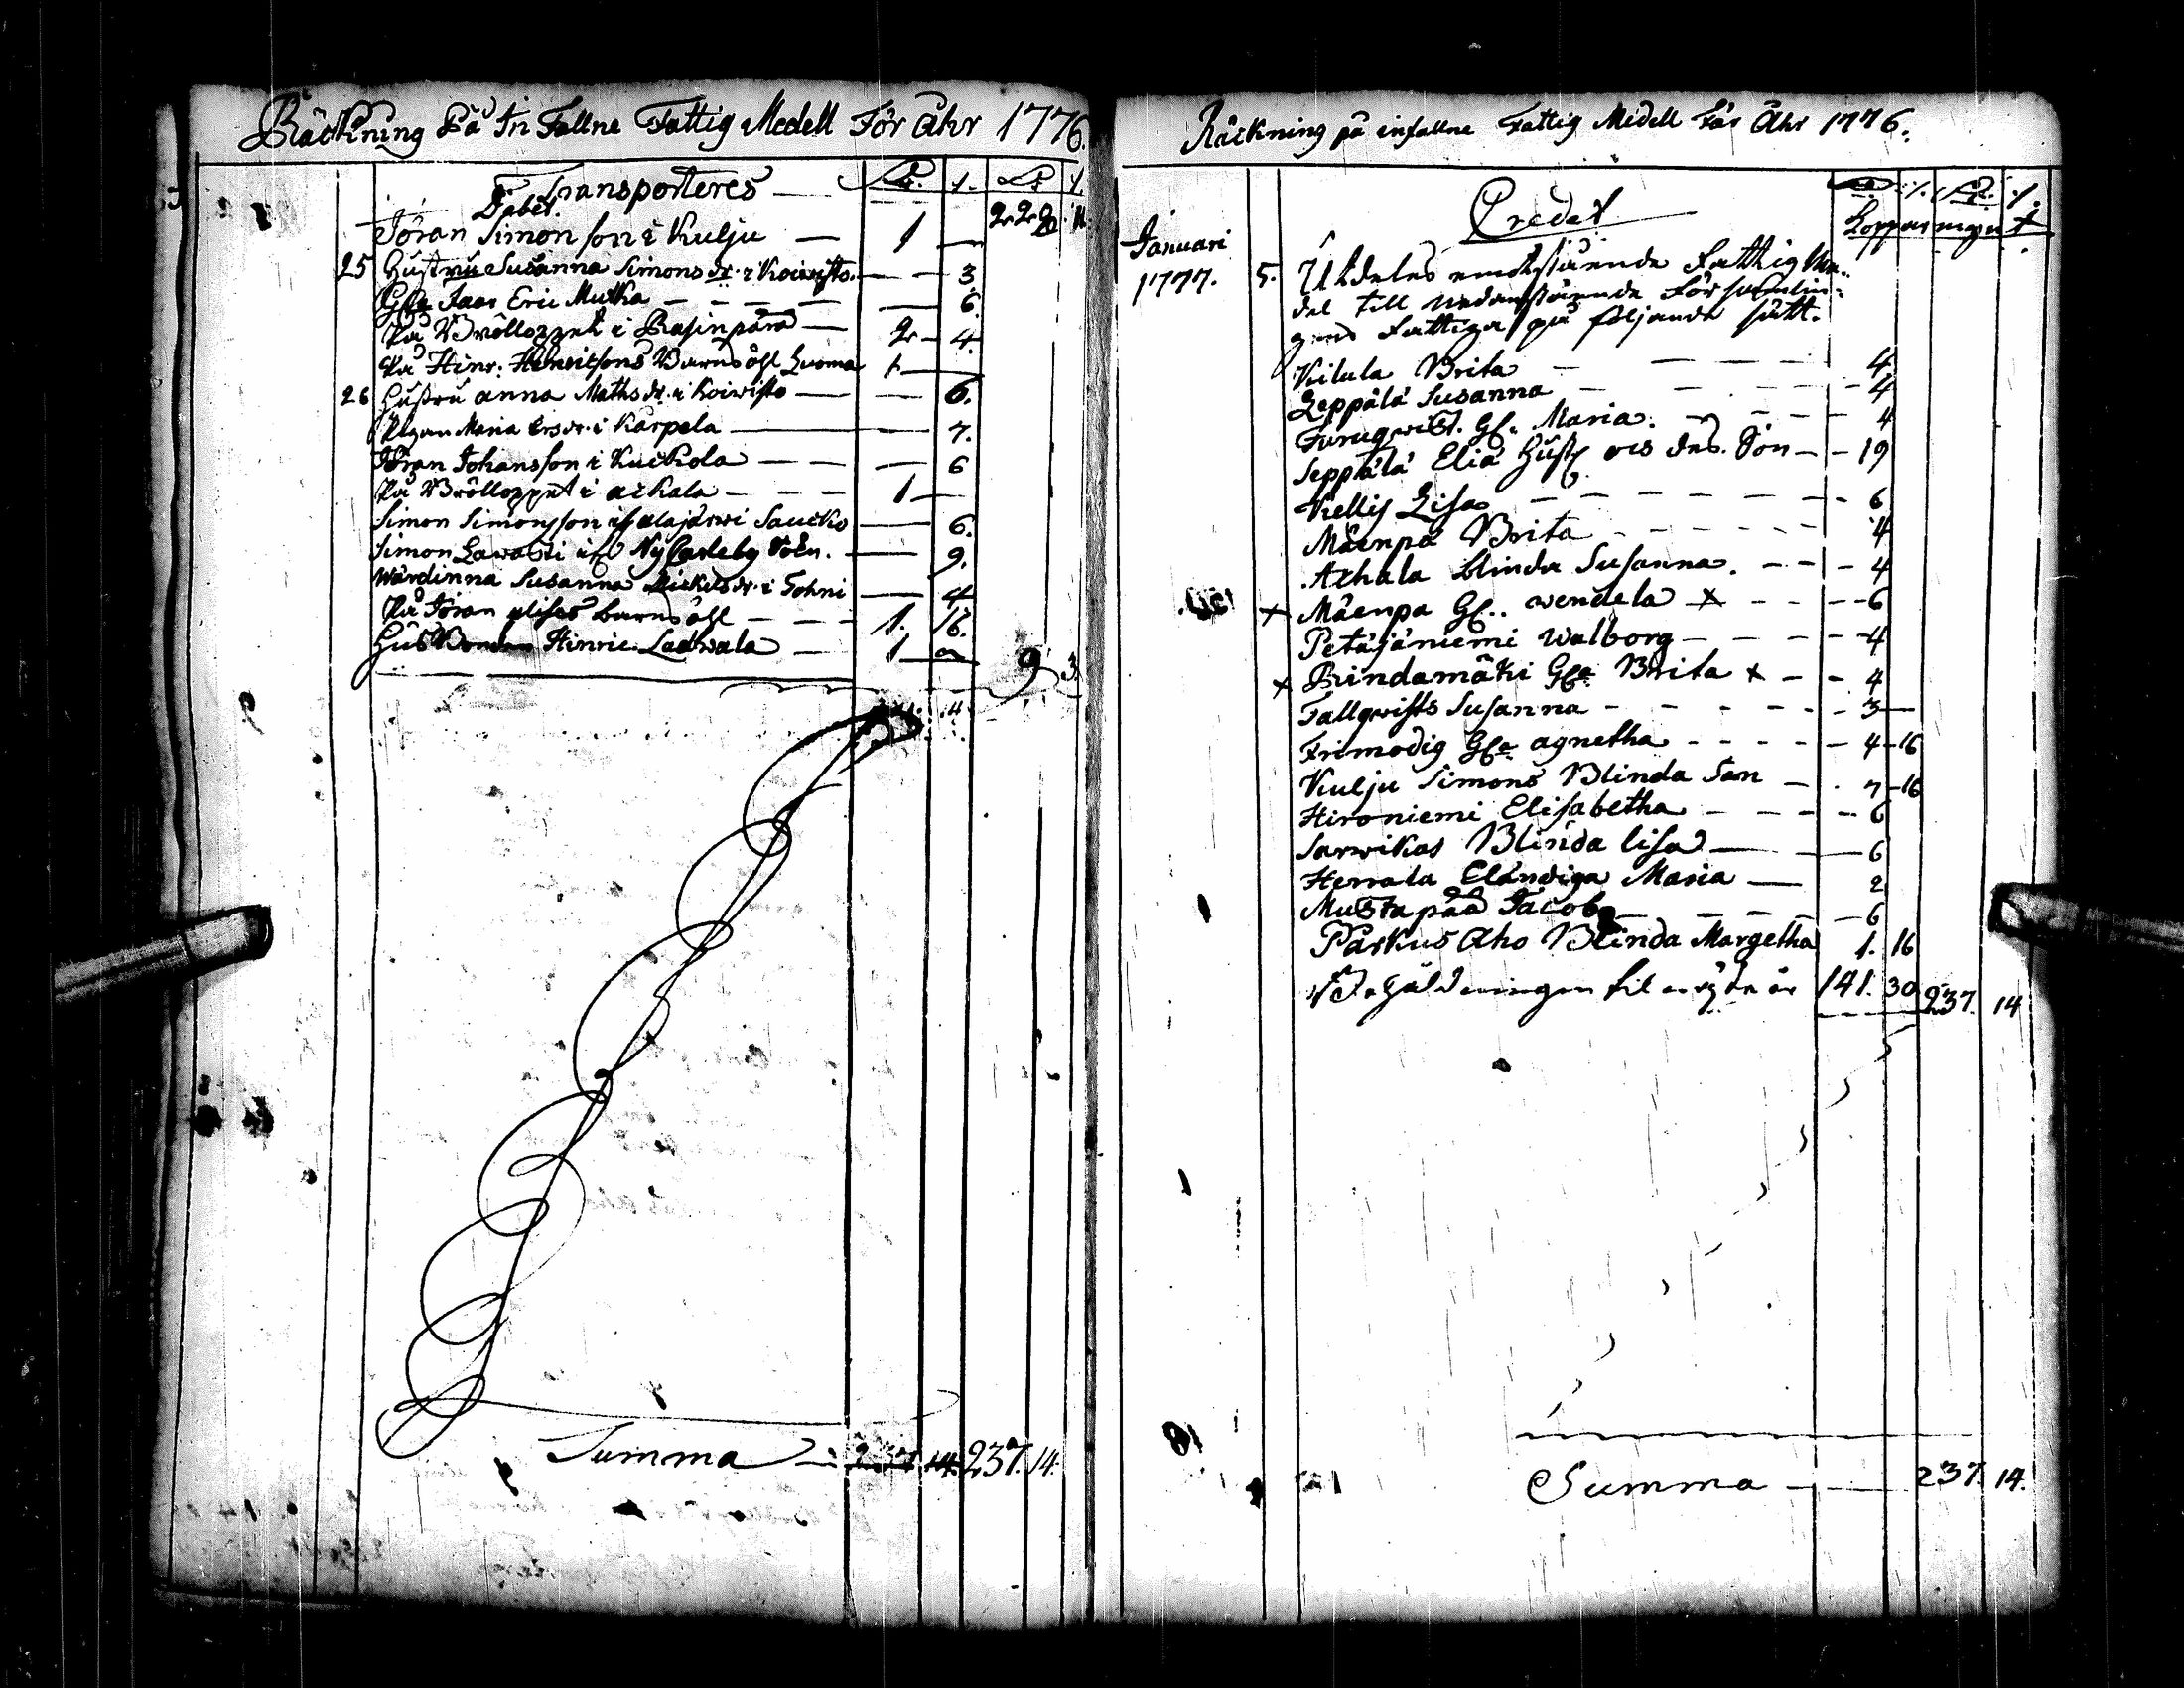 Räckning På In Fallne Fattig Medell För Åhr 1776.
Transporteres — 228. 11.
Debet.
Jöran Simonsson i Kulju — 1 —
25 Hustru Susanna Simons dr. i Koiwisto. — 3.
Eric Mutka — — 6.
På Brölloppet i Rasinpärä — 2 — 4.
På Hinr: Henricsons Barns öhl Luoma 1 —
26 Hustru Anna Maths dr. i Koiwisto — — 6.
Pigan Maria Ersdr. i Karpela — — 7.
Jöran Johansson i Kuckola — — 6
På Brölloppet i Ackala — 1 —
Simon Simonsson if Alajärwi Saucko — 6.
Simon if Ny Carleby Sokn. — 9.
Wärdinna Susanna Mickels dr. i Tohni — 4
På Jöran barns öhl — 1. 16.
Husbonden Hinric Laawala — 1 — 9 3.
Summa — 237. 14. 237. 14.
Räckning på infallne Fattig Medell För Åhr 1776.
Credet
Kopparmynt
Januari 1777. 5. Utdeltes emotstående Fattig Me-
del till Nedanstående Församlin-
gens Fattiga på följande sätt.
Kilula Brita — 4
Leppälä Susanna — 4
Furuqwist. Maria. — 4
Seppälä Eliä Hust ocs des. Son — 19
Kellis Lisa — 6
Mäenpä Brita — 4
Achala blinda Susanna. — 4
x Mäenpä wendela x — 6
Petäjäniemi Walborg — 4
x Rindamäki Brita x — 4
Fallqwists Susanna — 3 —
Frimodig Agnetha — 4 — 16
Kulju Simons Blinda Son — 7 — 16
Hironiemi Elisabetha — 6
Sarwikas Blinda lisa — 6
Herrala Eländiga Maria — 2
Mustapää Jacob — 6
Parkus Aho Blinda Margetha 1. 16
til nästa år 141. 30 237. 14
Summa — 237. 14.